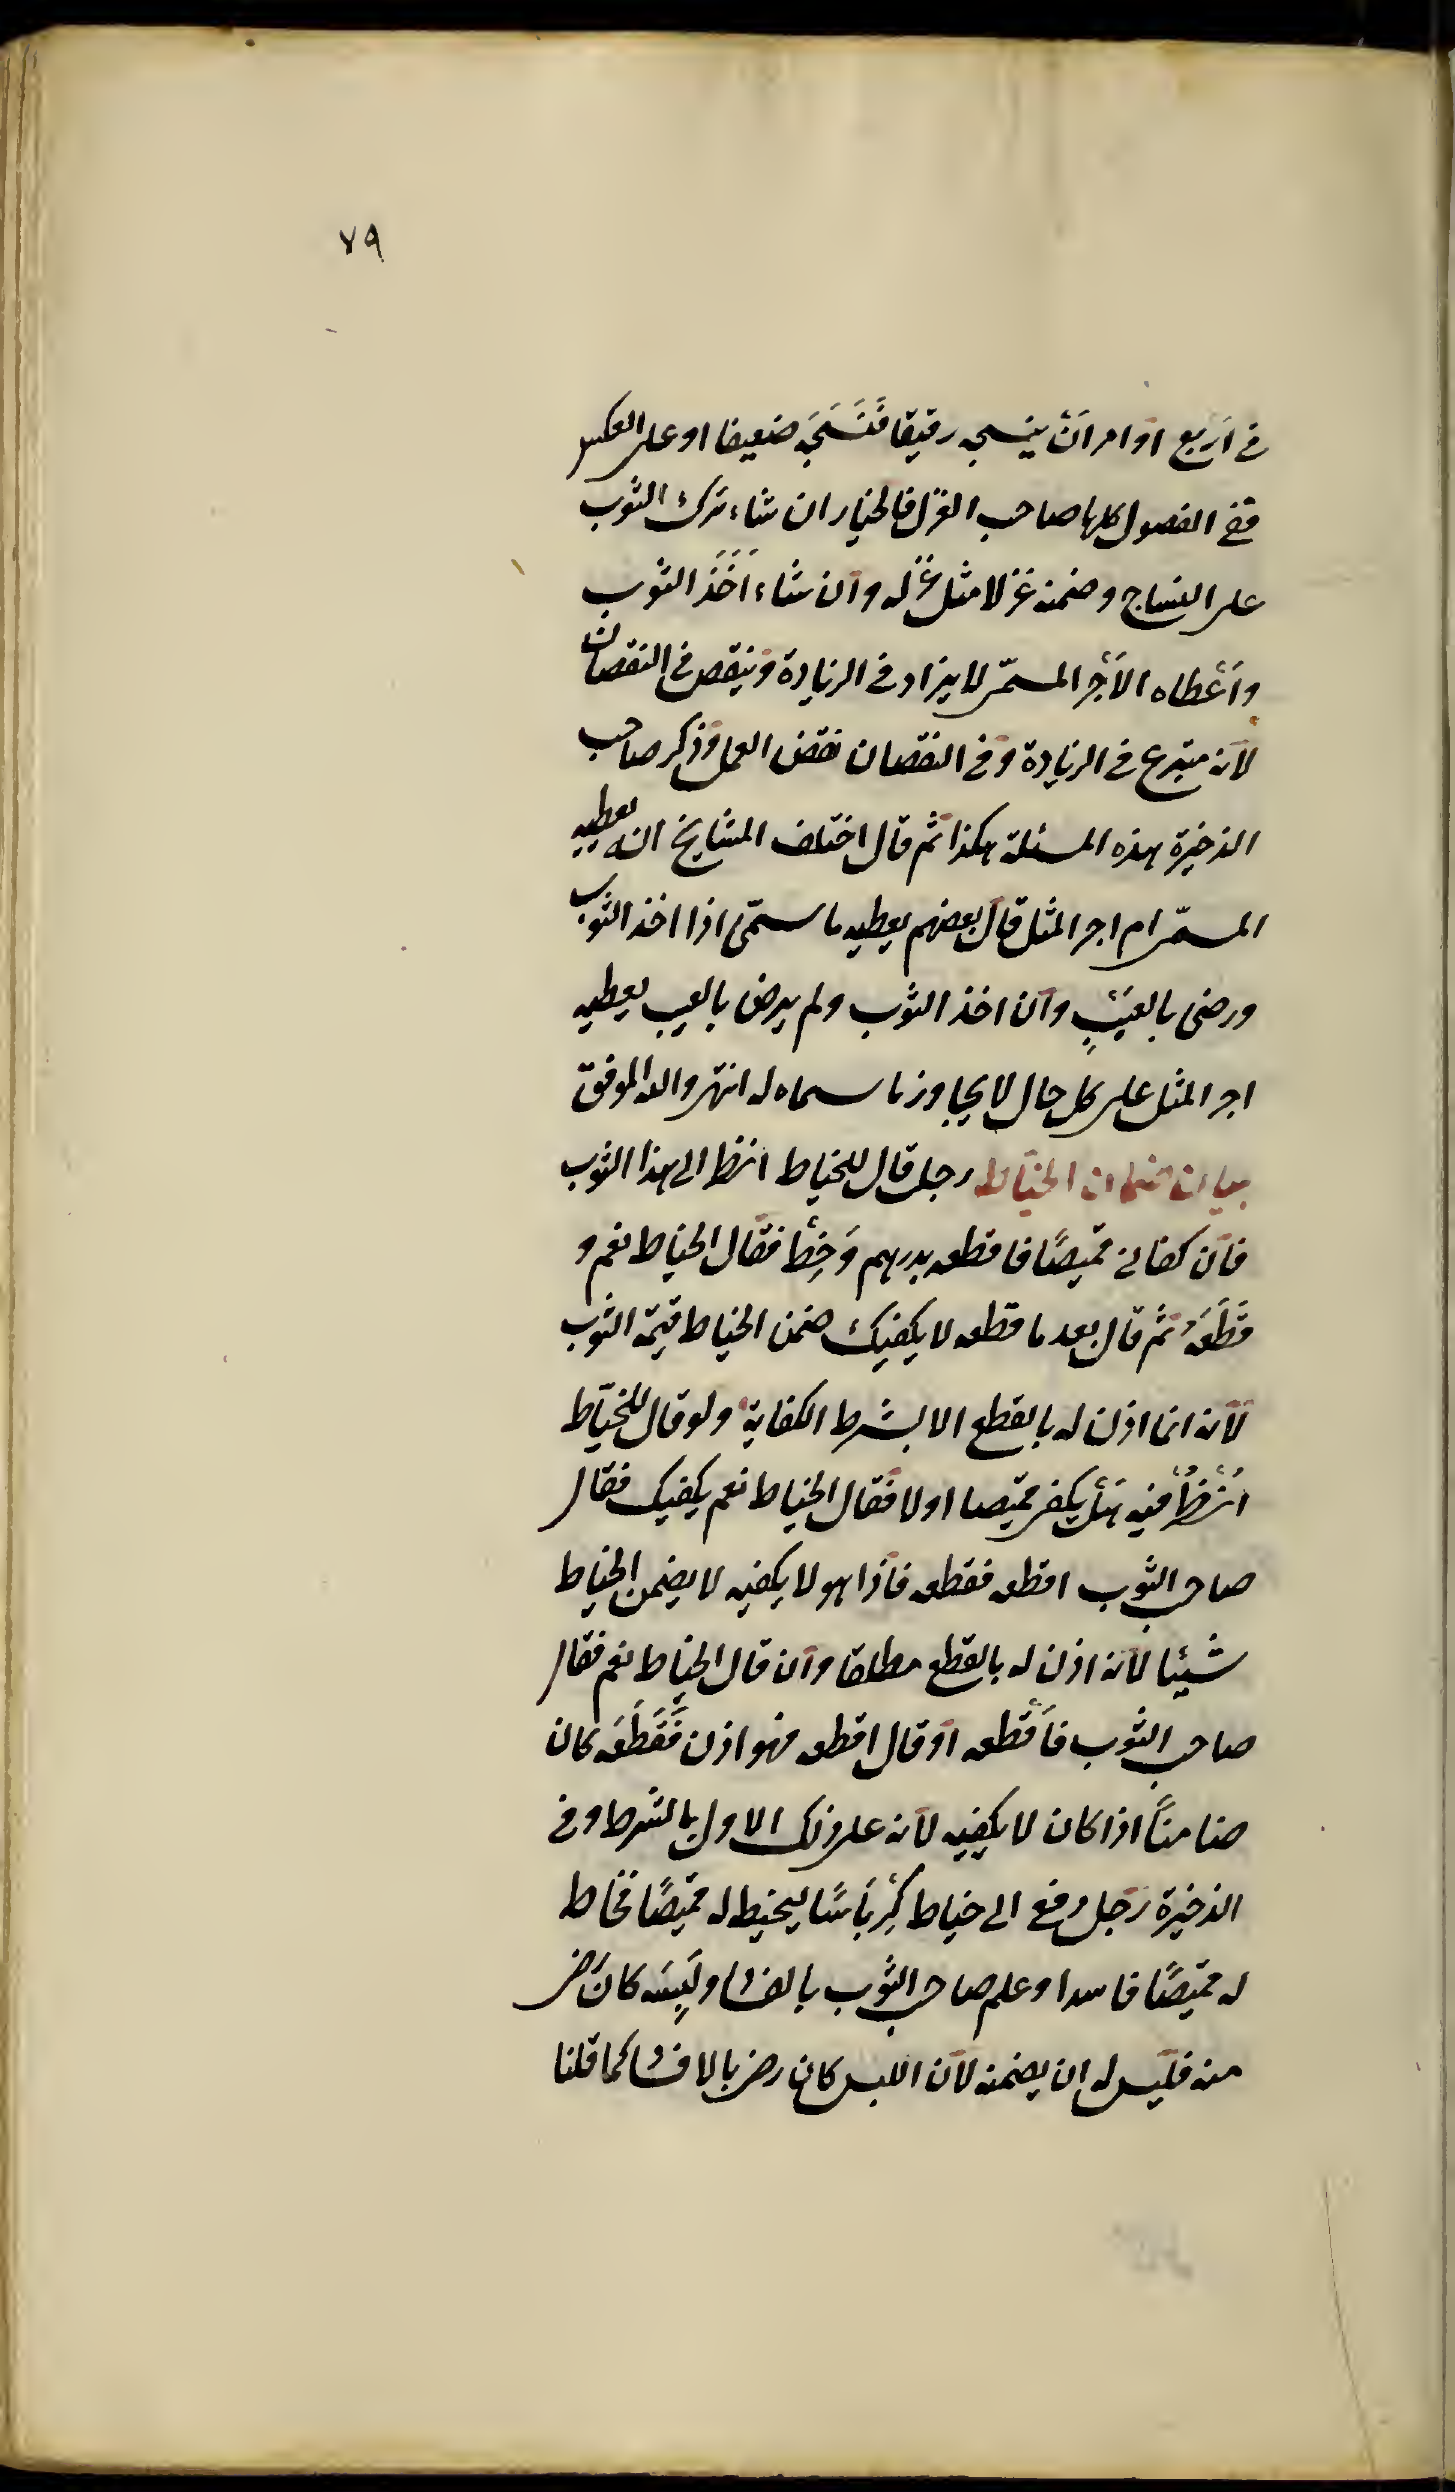 ٧٩
في اربع او امر ان ينسجه رقيقا فنسجه ضعيفا او على العكس
ففي الفصول كلها صاحب الغزل فالخيار ان شاء ترك الثوب
على النساج وضمنه غزلا مثل غزله وان شاء اخذ الثوب
واعطاه الاجر المسمّى لا يزاد في الزيادة وينقص في النقصان
لانه متبرع في الزيادة وفي النقصان نقض العمل وذكر صاحب
الذخيرة هذه المسئلة هكذا ثم قال اختلف المشايخ انه يعطيه
المسمّى ام اجر المثل قال بعضهم يعطيه ما سمّى اذا اخذ الثوب
ورضى بالعيب وان اخذ الثوب ولم يرض بالعيب يعطيه
اجر المثل على كل حال لا يجاوز ما سماه له انتهى والله الموفق
بيان ضمان الخيّاط رجل قال للخياط انظر الى هذا الثوب
فان كفانى قميصًا فاقطعه بدرهم وَخِطْ فقال الخياط نعم و
قَطَعَهُ ثم قال بعد ما قطعه لا يكفيك ضمن الخياط قيمة الثوب
لانه انما اذن له بالقطع الا بشرط الكفاية ولو قال للخيّاط
اُنْظُرْ فيه هَلْ يكفى قميصا اولا فقال الخياط نعم يكفيك فقال
صاحب الثوب اقطعه فقطعه فاذا هو لا يكفيه لا يضمن الخياط
شيئا لانه اذن له بالقطع مطلقا وان قال الخياط نعم فقال
صاحب الثوب فاَقْطعه او قال اقطعه فهو اذن فَقَطَعَه كان
ضامنًا اذا كان لا يكفيه لانه على ذلك الاول بالشرط وفي
الذخيرة رجل دفع الى خياط كِرْبَاسًا ليخيط له قميصًا فخاط
له قميصًا فاسدا وعلم صاحب الثوب بالفساد ولَبِسَه كان رضى
منه فليس له ان يضمنه لان اللبس كان رضى بالافساد كما قلنا